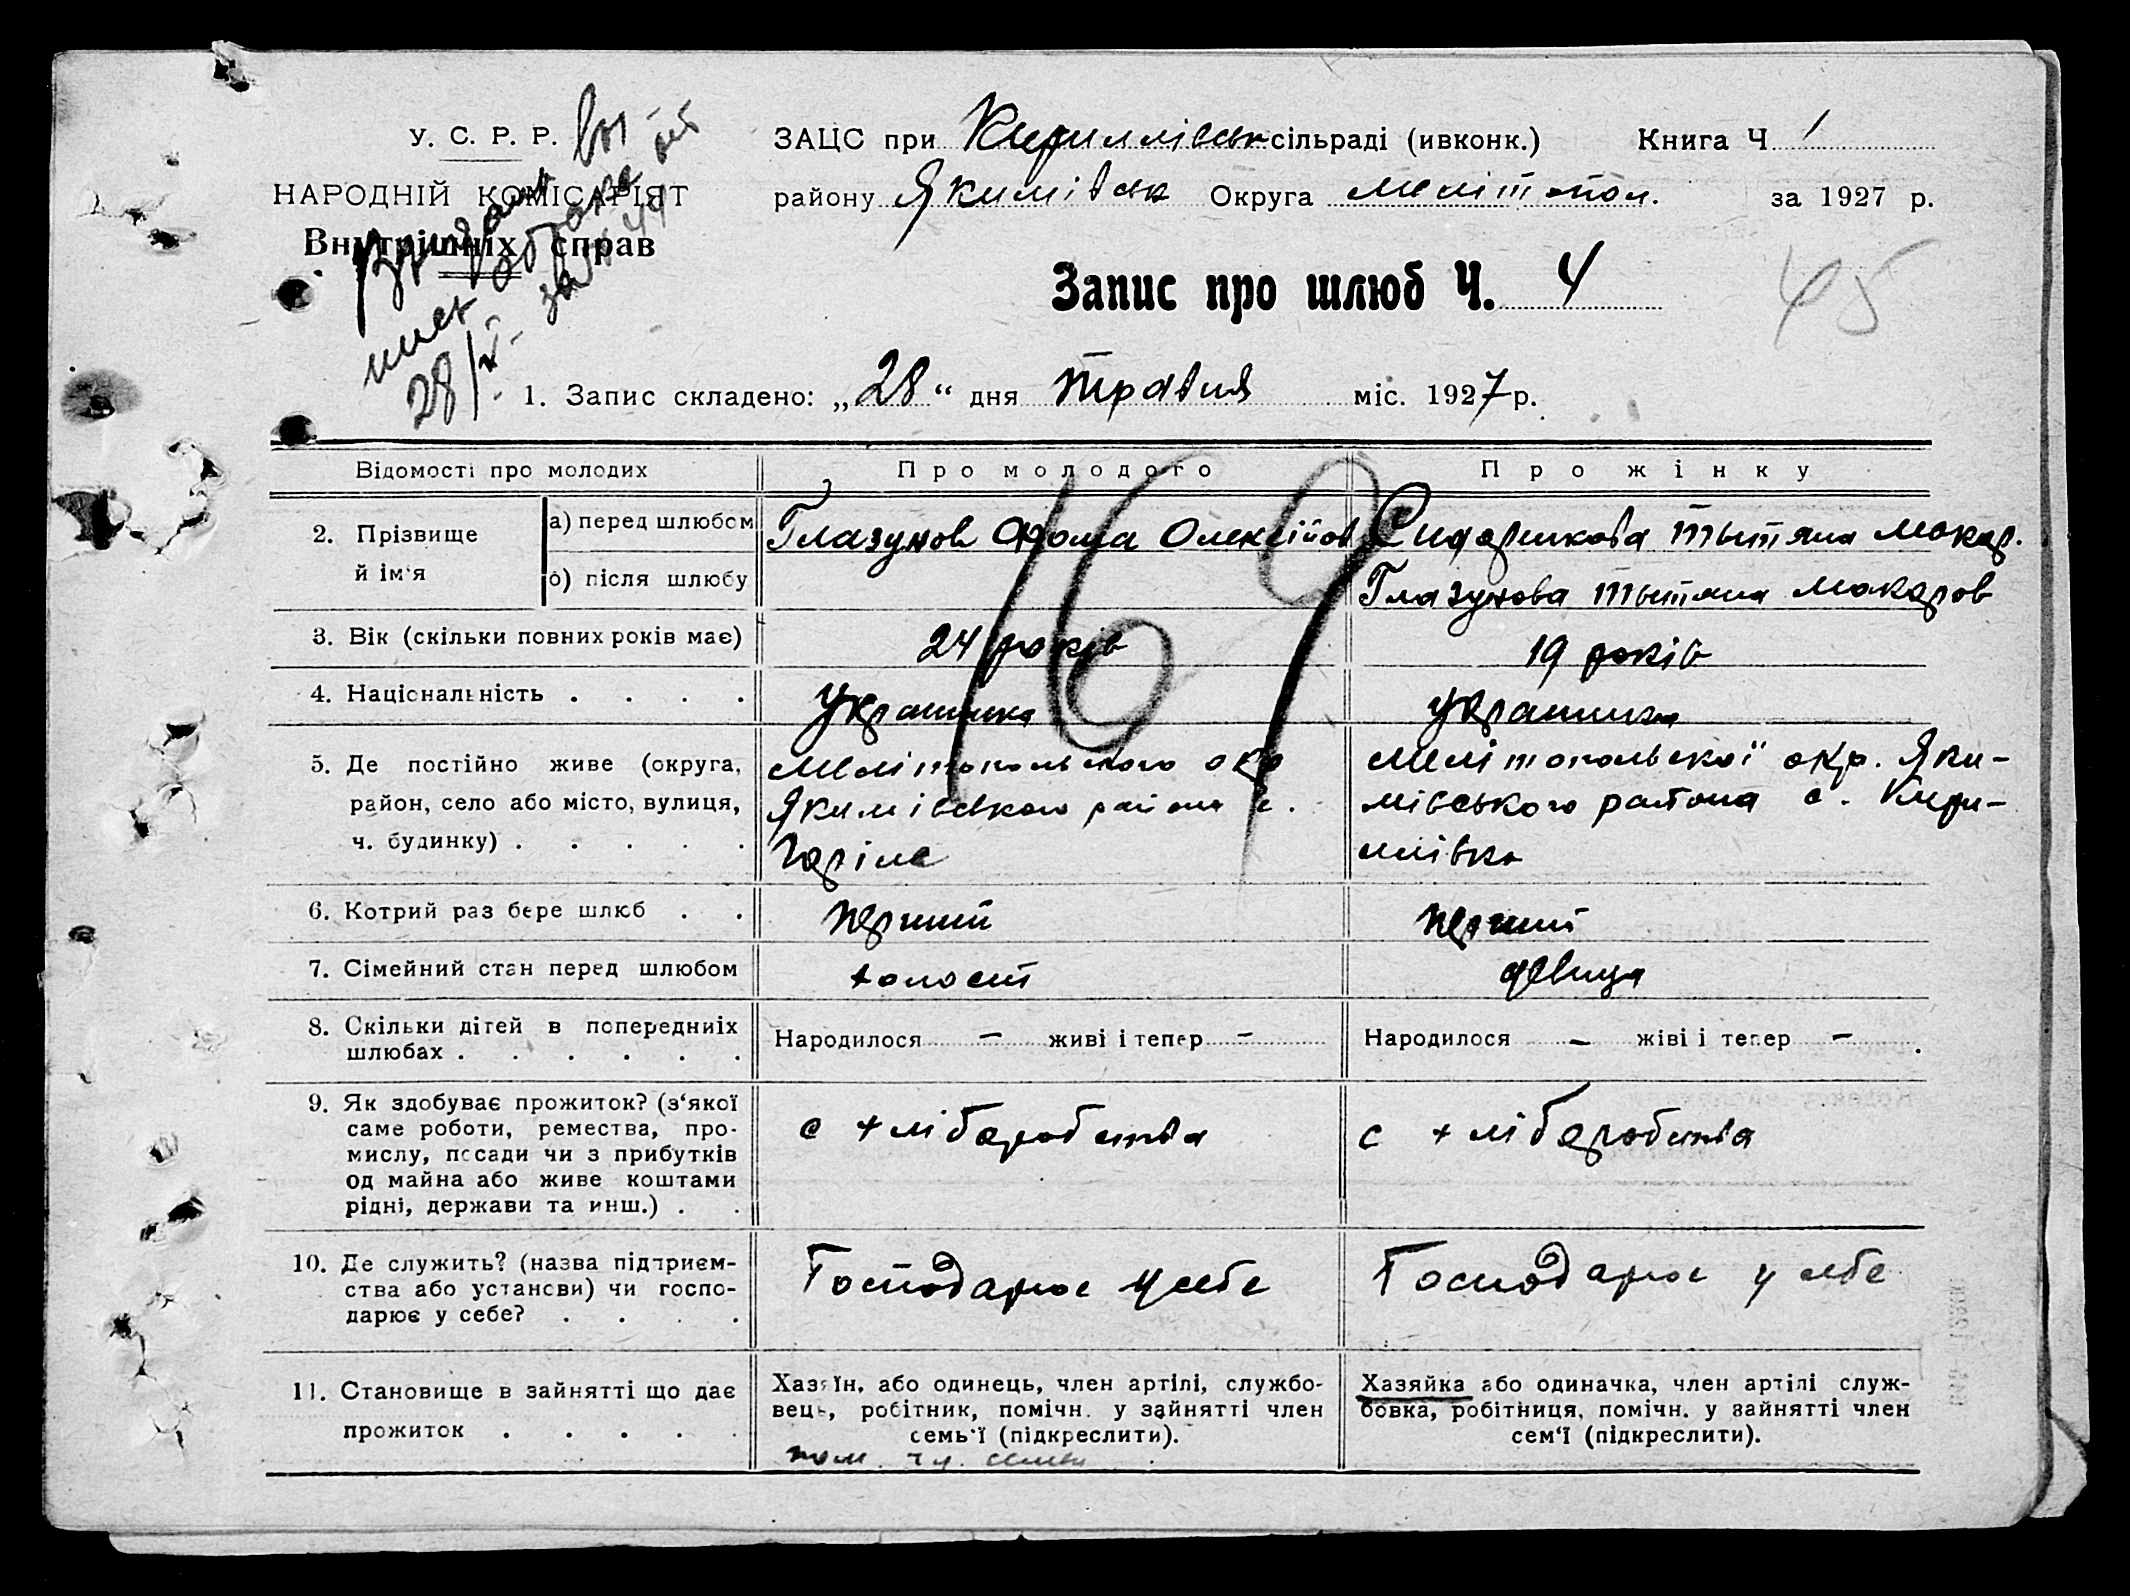 У. С. Р. Р.
НАРОДНІЙ КОМІСАРІЯТ
Внутрішніх справ
28/X
ЗАЦС при Кириллівськ сільраді (ивконк.) Книга Ч 1
району Якимівськ Округа Мелітопол. за 1927 р.
Запис про шлюб Ч. 4
45
1. Запис складено: „28“ дня Травня міс. 1927 р.
169
Відомості про молодих Про молодого Про жінку
2. Прізвище й ім'я
а) перед шлюбом Глазунов Фома Олексійов Сидоренкова Тытяна Макар.
б) після шлюбу Глазунова Тытяна Макаров
3. Вік (скільки повних років має) 24 років 19 років
4. Національність . . . . Украинка Украинка
5. Де постійно живе (округа, Мелітопольского окр Мелітопольскої окр. Яки-
район, село або місто, вулиця, Якимівського района с. мівського района с. Кири-
ч. будинку) . . . . . ллівка
6. Котрий раз бере шлюб . . перший перший
7. Сімейний стан перед шлюбом холост девица
8. Скільки дітей в попередниіх Народилося – живі і тепер – Народилося – жіві і тепер –
шлюбах . . . . . .
9. Як здобуває прожиток? (з‘якої с хліборобства с хліборобства
саме роботи, ремества, про-
мислу, посади чи з прибутків
од майна або живе коштами
рідні, держави та инш.) . .
10. Де служить? (назва підприєм- Господарює у себе Господарює у себе
ства або установи) чи госпо-
дарює у себе? . . . .
11. Становище в зайнятті що дає Хазяїн, або одинець, член артілі, службо- Хазяйка або одиначка, член артілі служ-
прожиток . . . . . вець, робітник, помічн. у зайнятті член бовка, робітниця, помічн. у зайнятті член
семь‘ї (підкреслити). сем‘ї (підкреслити).
пом. чл. семьи